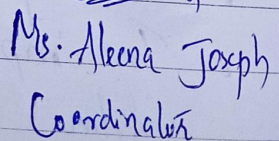 Ms. Aleena Joseph
Coordinator